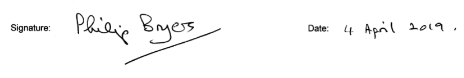 Signature: Philip Bryers Date: 4 April 2019.